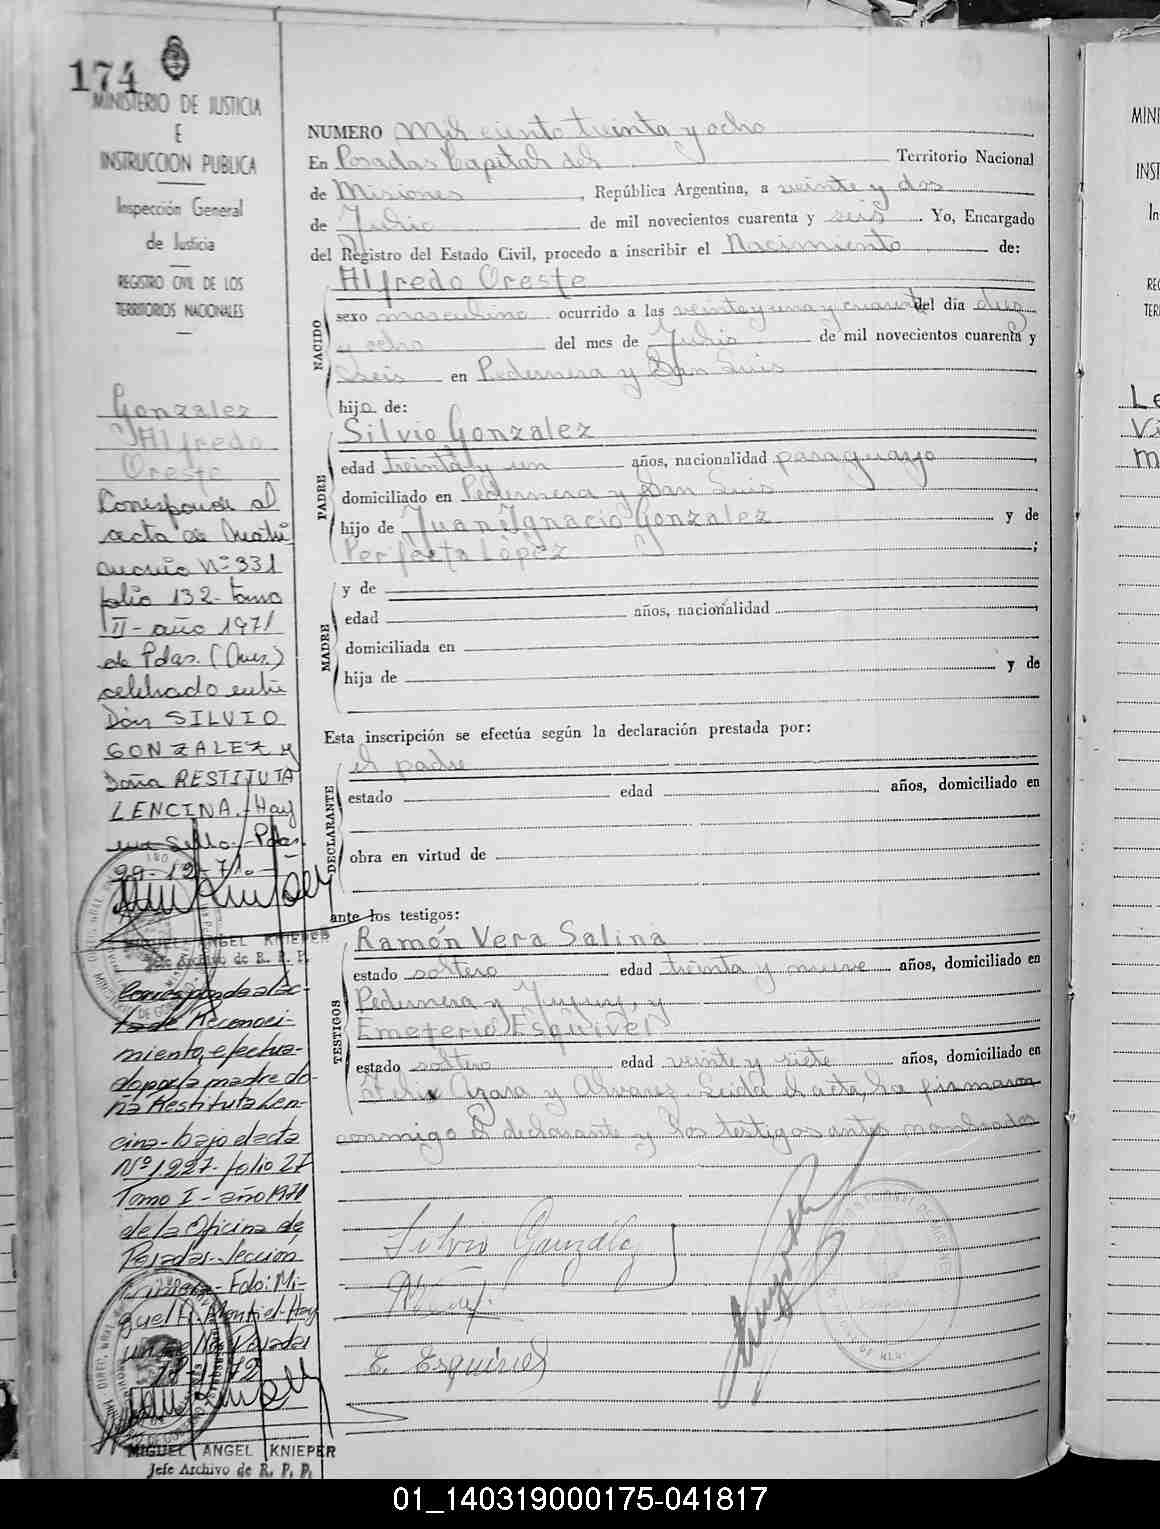 174
MINISTERIO DE JUSTICIA
E
INSTRUCCION PUBLICA
Inspección General
de Justicia
REGISTRO CIVIL DE LOS
TERRITORIOS NACIONALES
NUMERO Mil ciento treinta y ocho
En Posadas Capital del Territorio Nacional
de Misiones, República Argentina, a veinte y dos
de Julio de mil novecientos cuarenta y seis. Yo, Encargado
del Registro del Estado Civil, procedo a inscribir el Nacimiento de:
NACIDO
Alfredo Oreste
sexo masculino ocurrido a las veinte y una y cuarenta del día diez
y ocho del mes de Julio de mil novecientos cuarenta y
seis en Pedernera y San Luis
hijo de:
PADRE
Silvio Gonzalez
edad treinta y un años, nacionalidad paraguayo
domiciliado en Pedernera y San Luis
hijo de Juan Ignacio Gonzalez y de
Perfecta López;
MADRE
y de
edad años, nacionalidad
domiciliada en
hija de y de
Esta inscripción se efectúa según la declaración prestada por:
DECLARANTE
el padre
estado edad años, domiciliado en
obra en virtud de
ante los testigos:
TESTIGOS
Ramón Vera Salina
estado soltero edad treinta y nueve años, domiciliado en
Pedernera y Jujuy, y
Emeterio Esquivel
estado soltero edad veinte y siete años, domiciliado en
Felix Azara y Alvarez. Leida el acta, la firmaron
conmigo el declarante y los testigos antes nombrados
Silvio González
E. Esquivel
Gonzalez
Alfredo
Oreste
Corresponde al
acta de Matri
monio Nº 331
folio 132- tomo
II- año 1971
de Pdas.
celebrado entre
Don SILVIO
GONZALEZ y
Doña RESTITUTA
LENCINA.- Hay
un Sello.- Pdas.
29-12-71.-
MIGUEL ANGEL KNIEPER
Jefe Archivo de R. P. P.
Corresponde al ac-
ta de Reconoci-
miento, efectua-
do por la madre do-
ña Restituta Len-
cina- bajo el acta
Nº 1227- folio 27
Tomo I- año 1971
de la Oficina de
Posadas- Sección
Fdo: Mi-
guel A. Montiel Hay
un sello Posadas
18-1-72
MIGUEL ANGEL KNIEPER
Jefe Archivo de R. P. P.
01_140319000175-041817